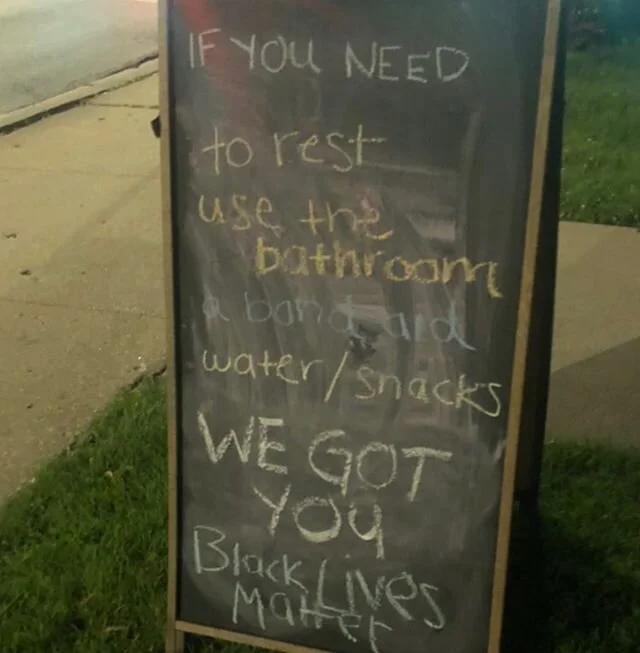 IF YOU NEED
to rest
use the
bathroom
a band aid
water/snacks
WE GOT
YOU
Black Lives
Matter